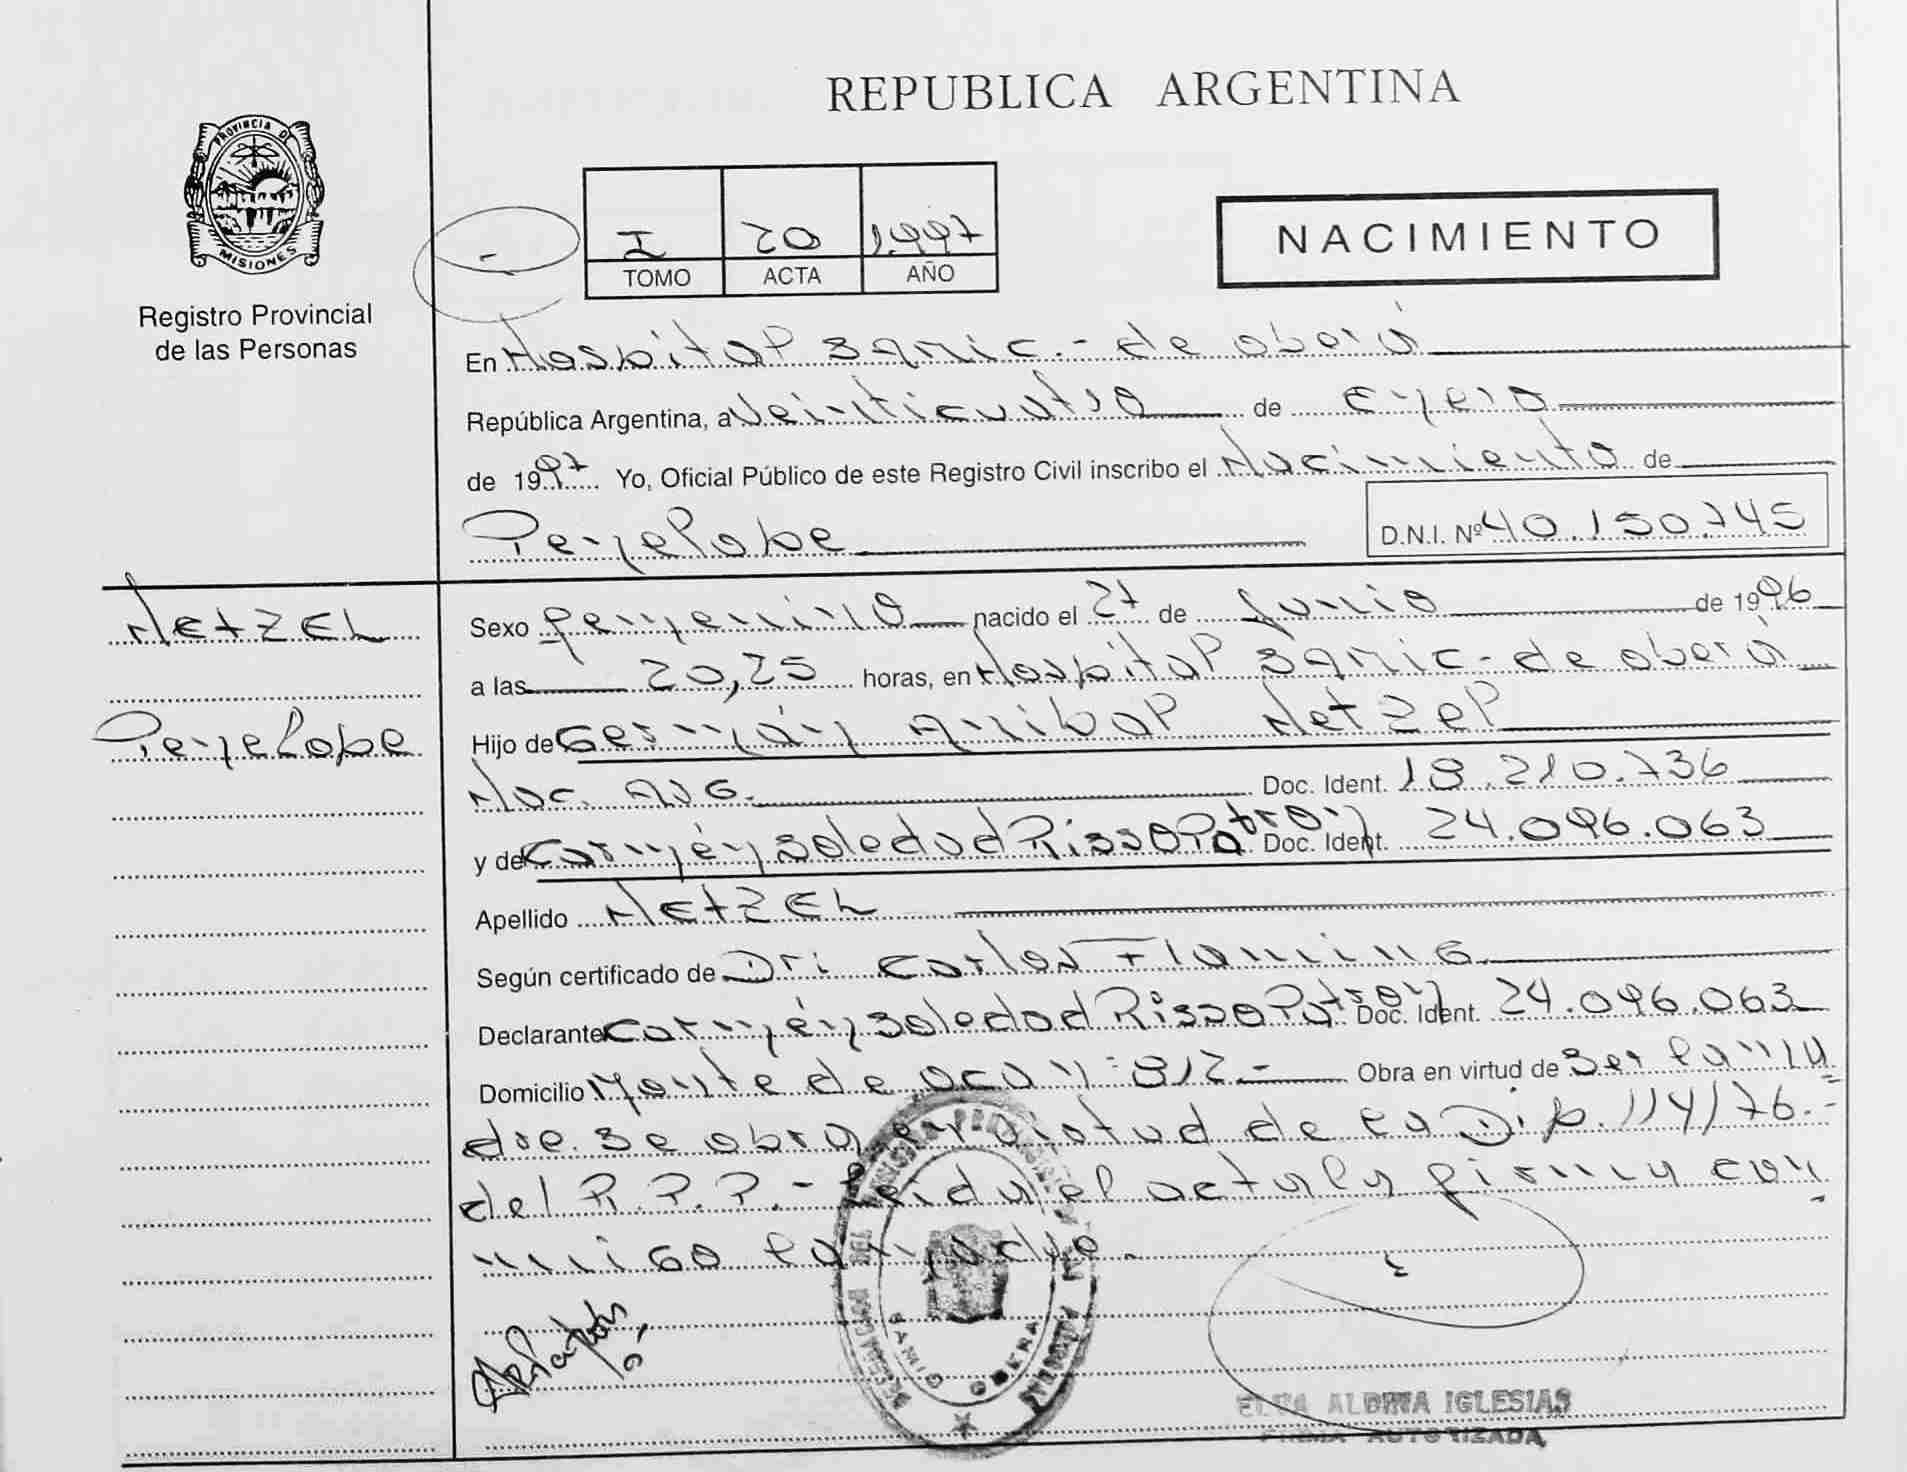 REPUBLICA ARGENTINA
PROVINCIA DE
MISIONES
Registro Provincial
de las Personas
I 20 1.997
TOMO ACTA AÑO
NACIMIENTO
En Hospital Samic.- de oberá
República Argentina, a Veinticuatro de Enero
de 1997 Yo, Oficial Público de este Registro Civil inscribo el Nacimiento de
Penelope D.N.I. Nº 40.150.745
NETZEL
Penelope
Sexo femenino nacido el 27 de Junio de 1996
a las 20,25 horas, en Hospital Samic - de oberá
Hijo de Germán Anibal Netzel
Nac. ARG. Doc. Ident. 18.210.736
y de Carmén Soledad Risso Patron Doc. Ident. 24.096.063
Apellido NETZEL
Según certificado de Dr: Carlos Flamin
Declarante Carmén Soledad Risso Patron Doc. Ident. 24.096.063
Domicilio Monte de oca n: 812.- Obra en virtud de Ser la ma
dre. Se obra en virtud de la Dip. 114/76.-
del R.P.P.- Leida el acta la firma con
migo la madre.
SAMIC OBERA
ALBINA IGLESIAS
FIRMA AUTORIZADA